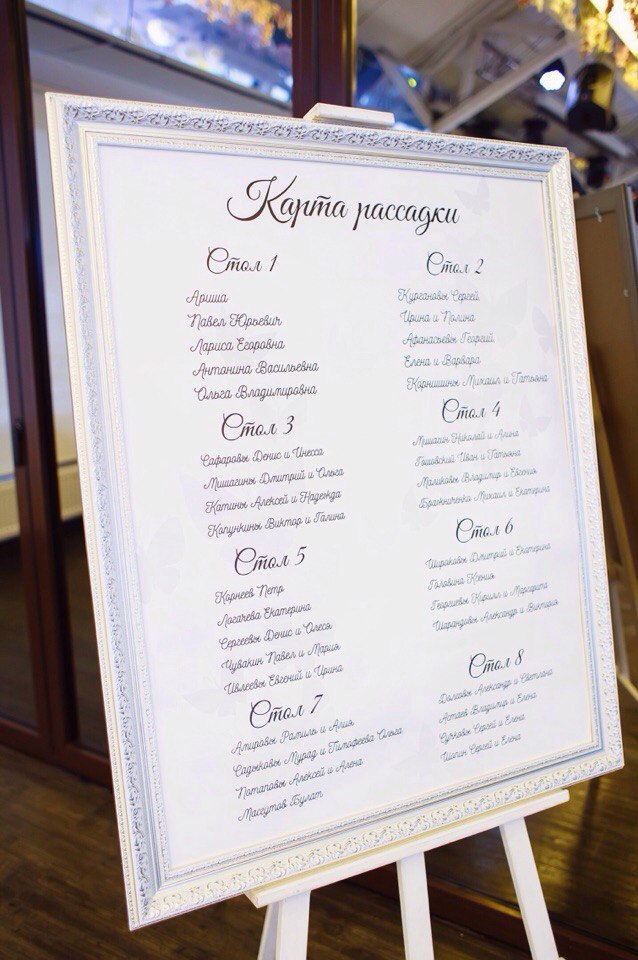 Карта рассадки
Стол 1
Ариша
Павел Юрьевич
Лариса Егоровна
Антонина Васильевна
Ольга Владимировна
Стол 2
Кургановы Сергей,
Ирина и Полина
Афанасьевы Георгий,
Елена и Варвара
Корнишины Михаил и Татьяна
Стол 3
Сафаровы Денис и Инесса
Мишагины Дмитрий и Ольга
Катины Алексей и Надежда
Копункины Виктор и Галина
Стол 4
Мишагин Николай и Алина
Гошовский Иван и Татьяна
Маликовы Владимир и Евгения
Бражниченко Михаил и Екатерина
Стол 5
Корнеев Петр
Логачева Екатерина
Сергеевы Денис и Олеся
Чувакин Павел и Мария
Ивлеевы Евгений и Ирина
Стол 6
Широковы Дмитрий и Екатерина
Головина Ксения
Георгиевы Кирилл и Маргарита
Шарандовы Александр и Виктория
Стол 7
Амировы Рамиль и Алия
Садыковы Мурад и Тимофеева Ольга
Потаповы Алексей и Алена
Масгутов Булат
Стол 8
Долговы Александр и Светлана
Астаев Владимир и Елена
Сучковы Сергей и Елена
Шопин Сергей и Елена